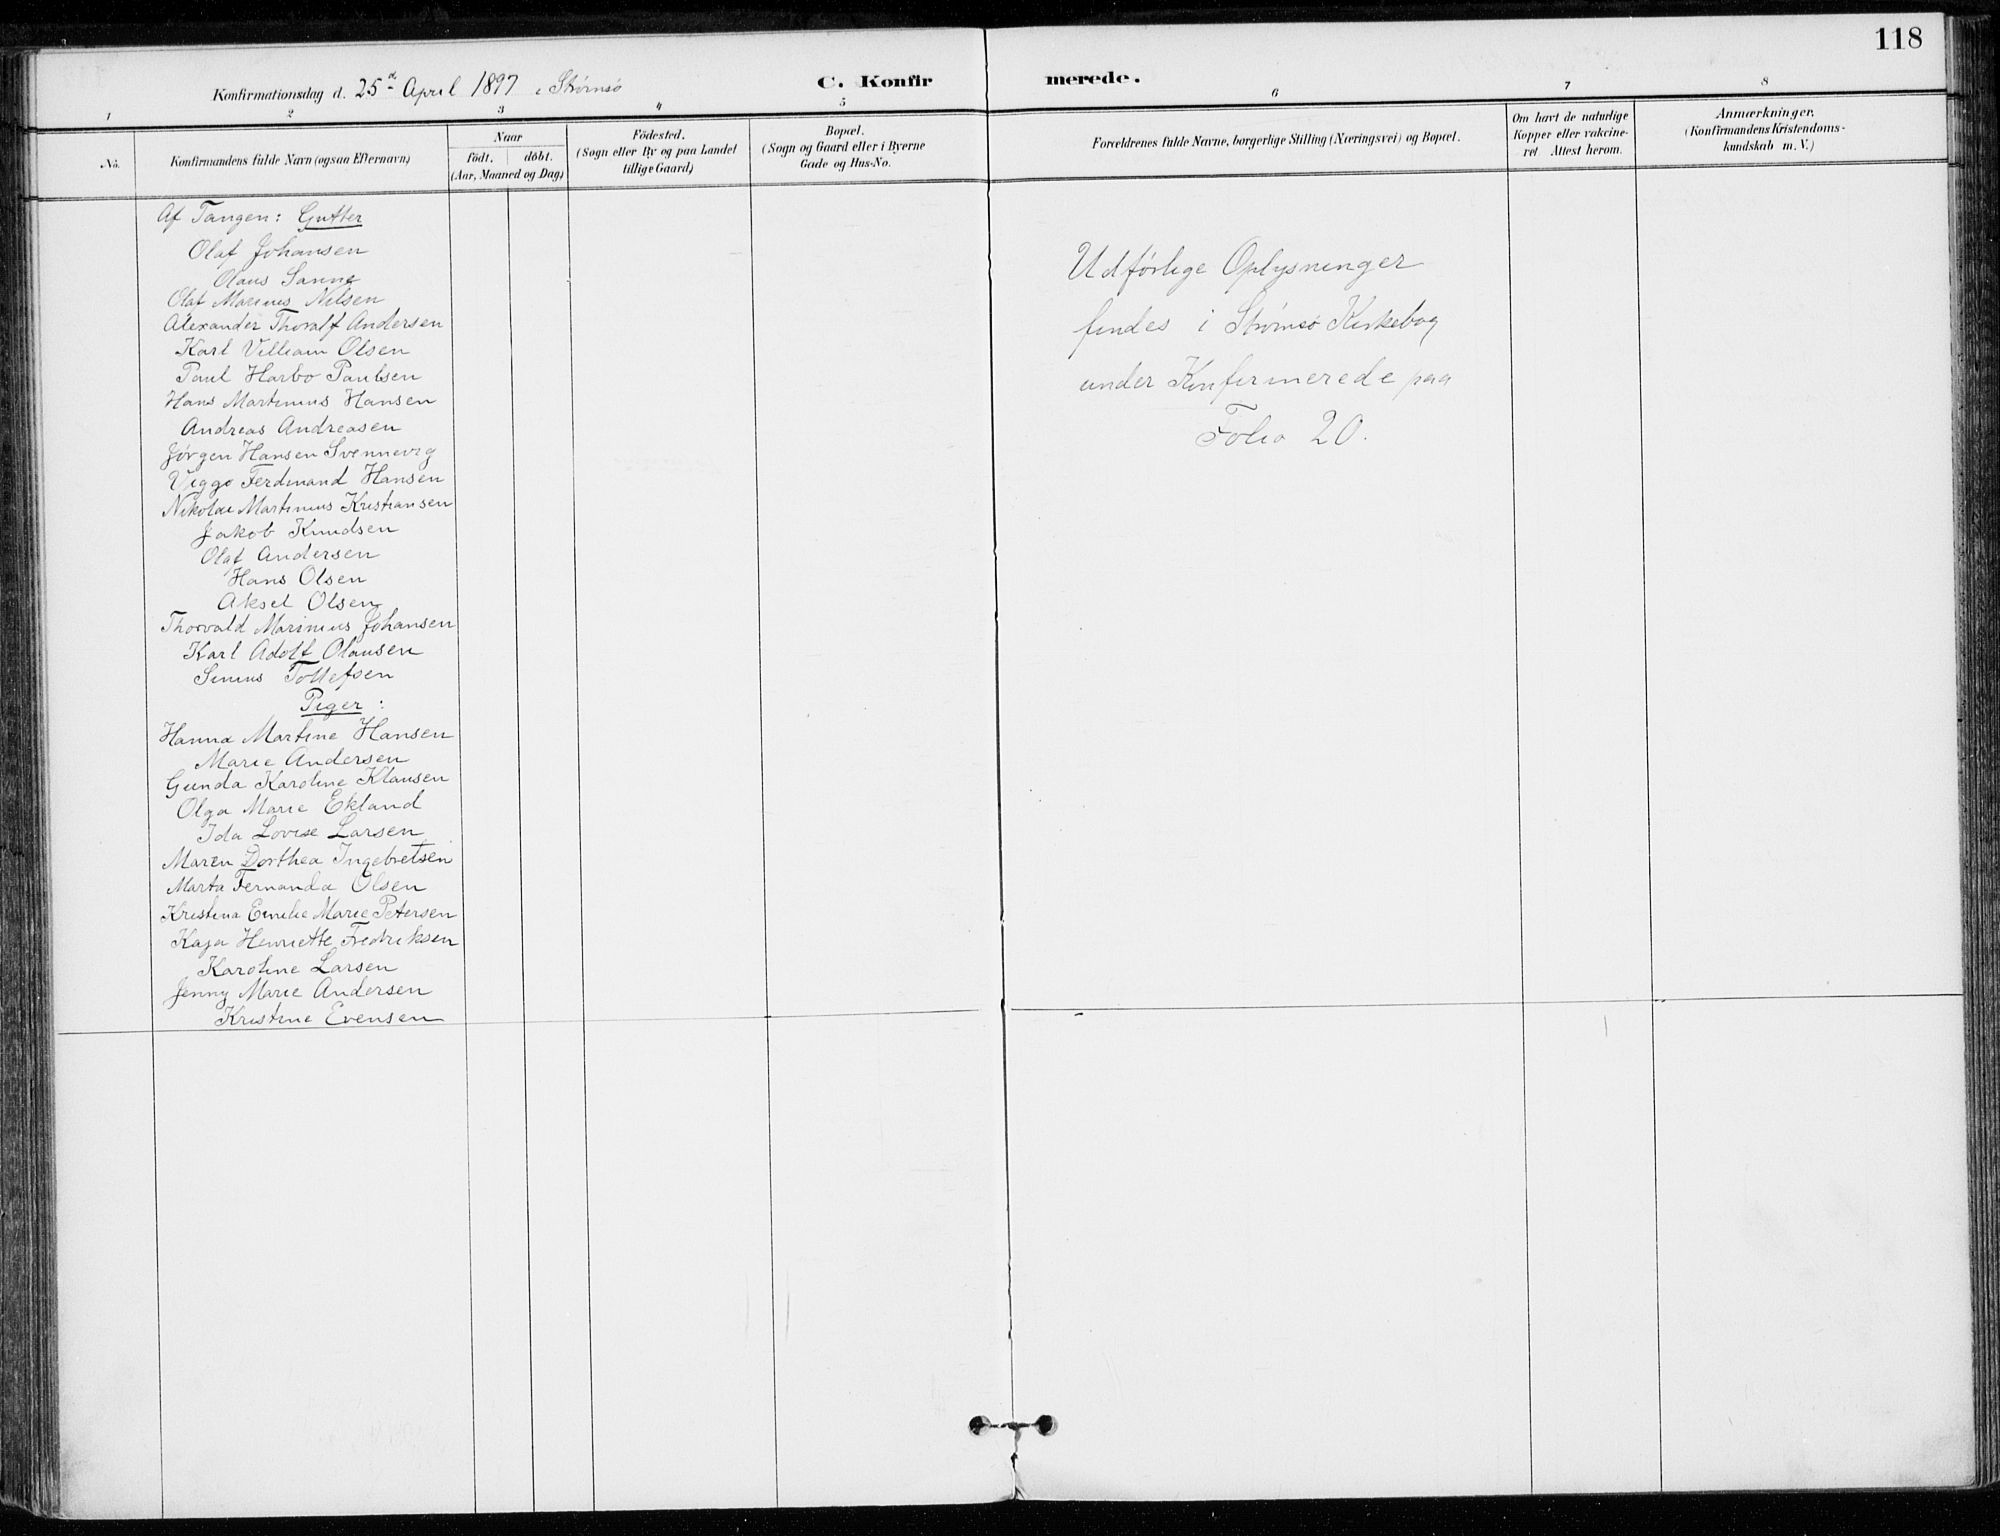 118
Konfirmationsdag d. 25d April 1897 i Strømsø
C. Konfirmerede.
1 2 3 4 5 6 7 8
No.
Konfirmandens fulde Navn (ogsaa Efternavn)
Naar
födt. döbt.
(Aar, Maaned og Dag)
Födested.
(Sogn eller By og paa Landet
tillige Gaard)
Bopæl.
(Sogn og Gaard eller i Byerne
Gade og Hus-No.
Forældrenes fulde Navne, borgerlige Stilling (Næringsvei) og Bopæl.
Om havt de naturlige
Kopper eller vakcine-
ret Attest herom.
Anmærkninger.
(Konfirmandens Kristendoms-
kundskab m. V.)
Af Tangen: Gutter
Olaf Johansen
Olaus Sanne
Olaf Marinus Nilsen
Alexander Thoralf Andersen
Karl Villiam Olsen
Paul Harbo Paulsen
Hans Martinius Hansen
Andreas Andreasen
Jørgen Hansen Svennevig
Viggo Ferdinand Hansen
Nikolai Martinius Kristiansen
Jakob Knudsen
Olaf Andersen
Hans Olsen
Aksel Olsen
Thorvald Marinius Johansen
Karl Adolf Olausen
Sinius Tollefsen
Piger:
Hanna Martine Hansen
Marie Andersen
Gunda Karoline Klausen
Olga Marie Ekland
Ida Lovise Larsen
Maren Dorthea Ingebretsen
Marta Fernanda Olsen
Kristina Emilie Marie Petersen
Kaja Henriette Fredriksen
Karoline Larsen
Jenny Marie Andersen
Kristine Evensen
Udførlige Oplysninger
findes i Strømsø Kirkebog
under Konfirmerede paa
Folio 20.